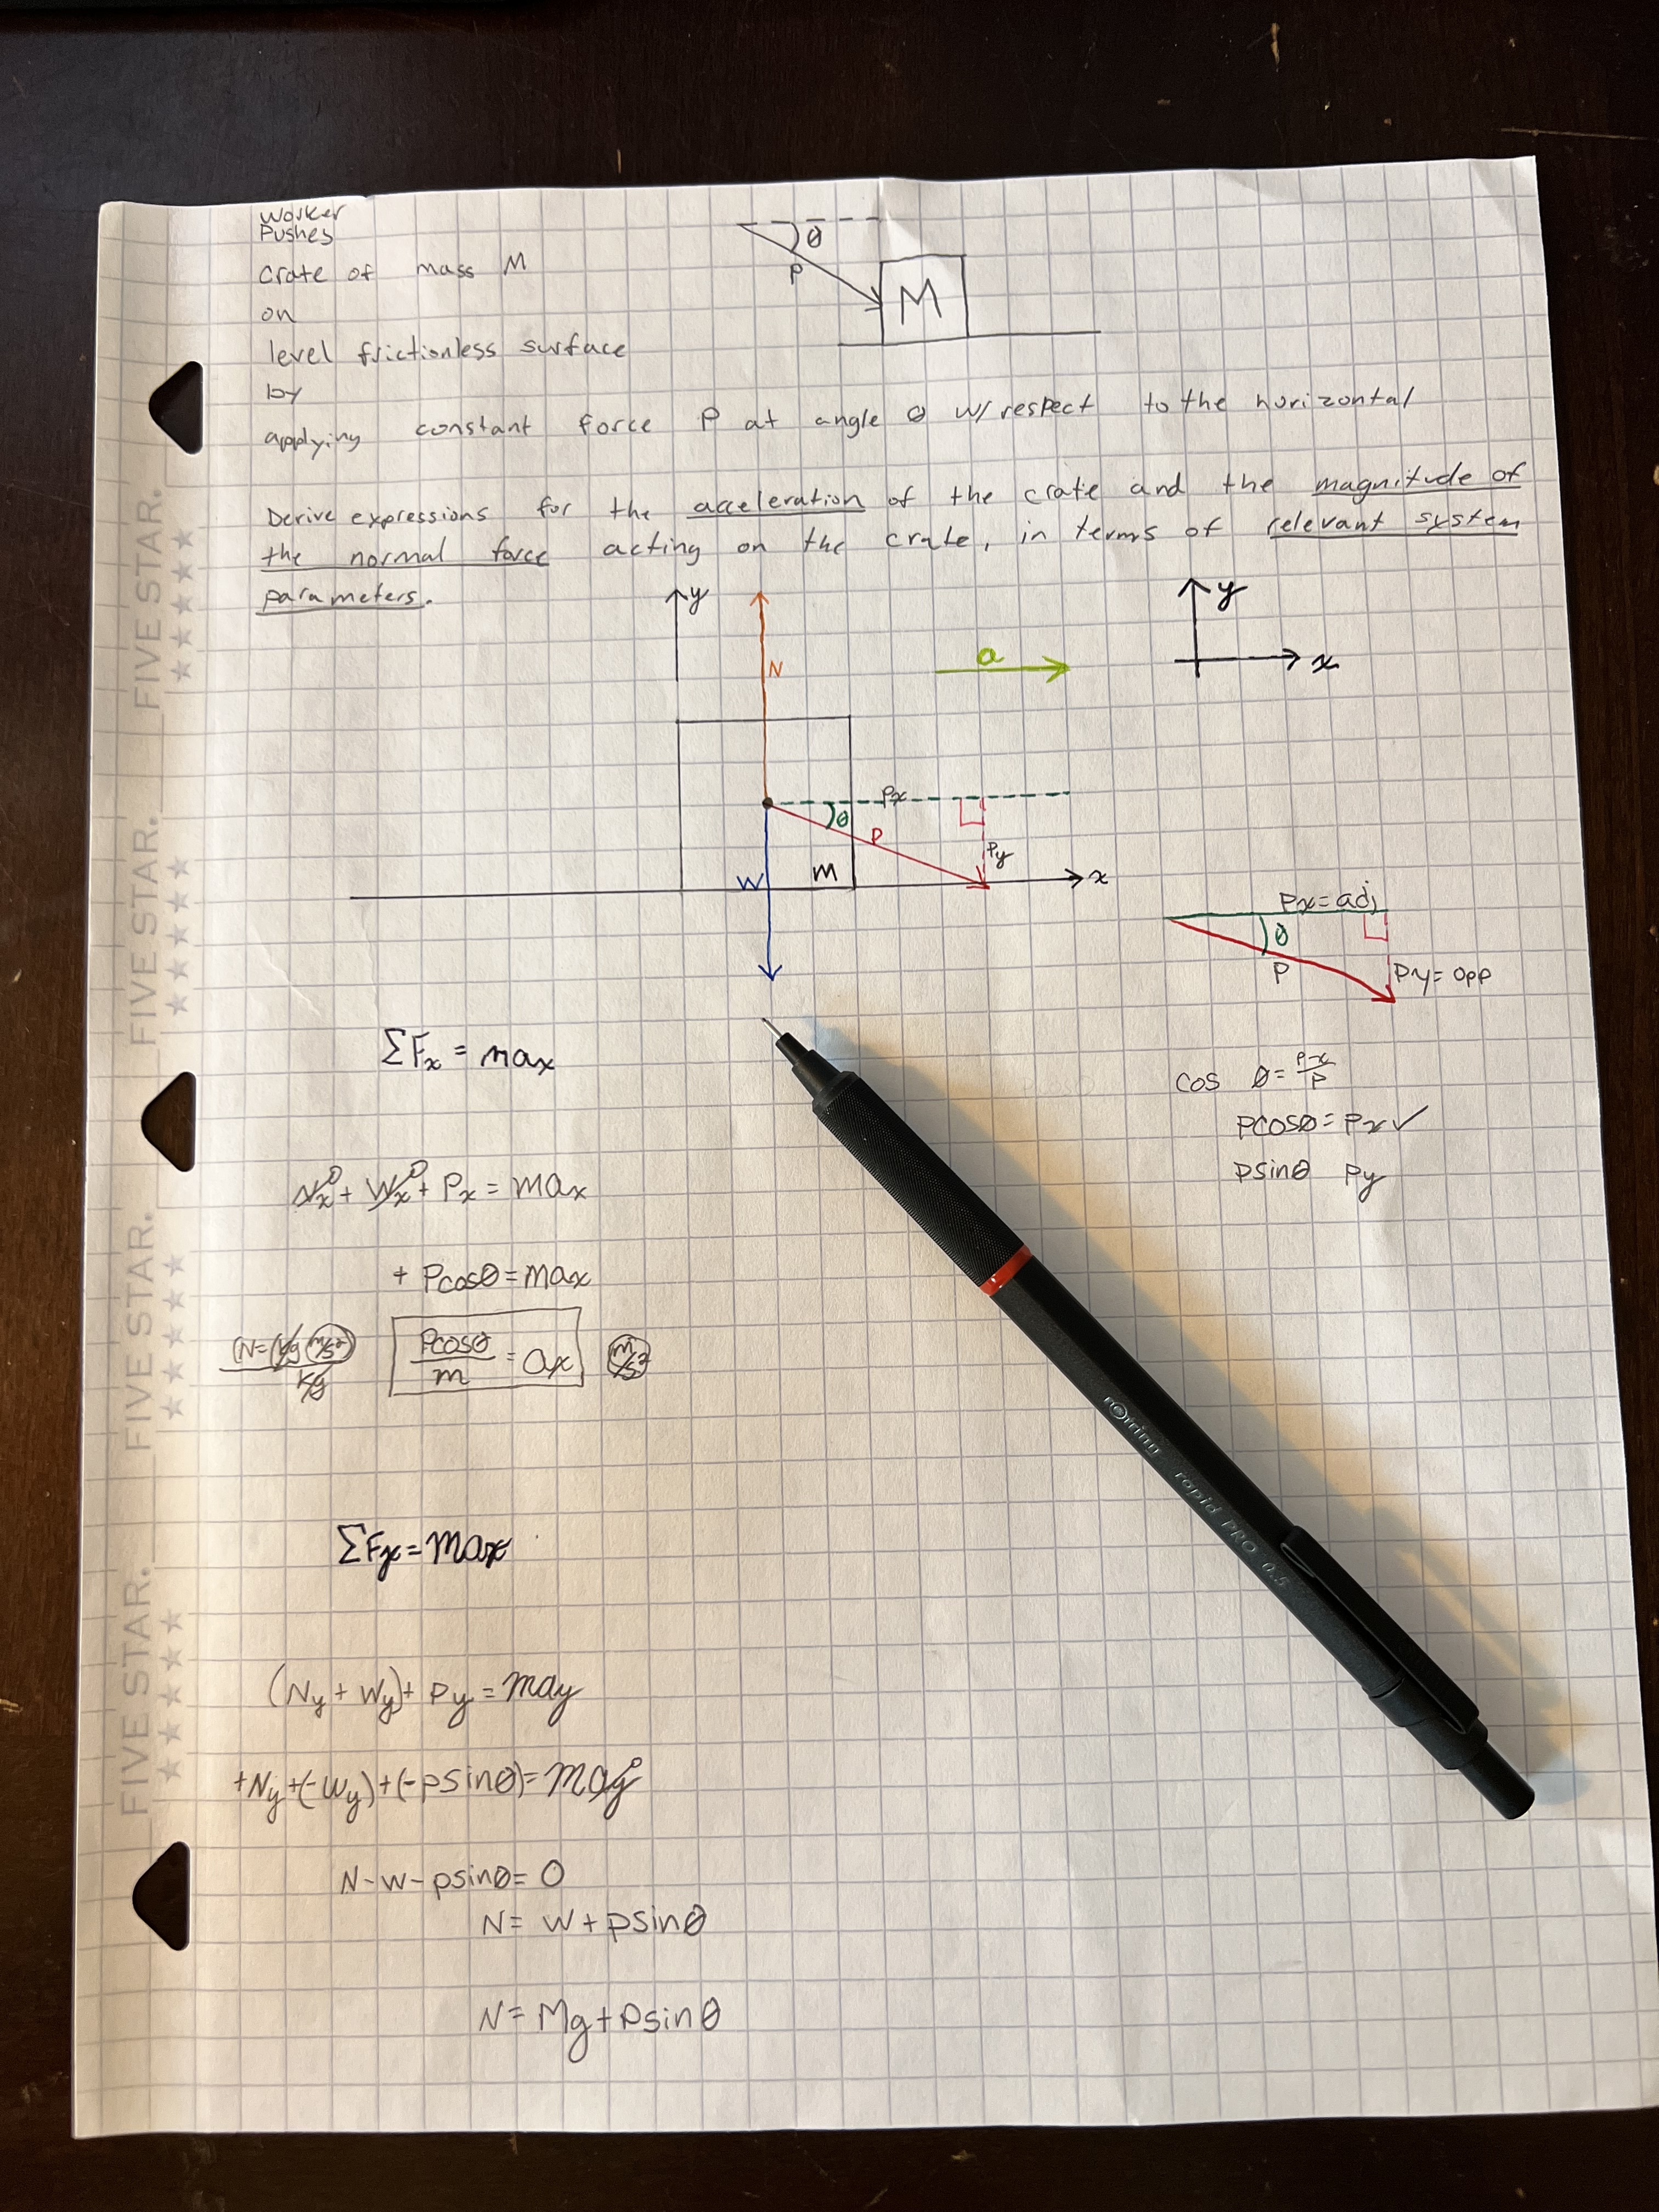 Worker
Pushes
Crate of mass M
on
level frictionless surface
by
applying constant force P at angle θ w/ respect to the horizontal
θ
P
M
Derive expressions for the acceleration of the crate and the magnitude of
the normal force acting on the crate, in terms of relevant system
parameters.
y
N
a
y
x
Px
θ
P
Py
W
m
x
Px = adj
θ
P
Py = opp
ΣFx = max
cos θ = Px/P
Pcosθ = Px ✓
Psinθ Py
Nx⁰ + Wx⁰ + Px = max
+ Pcosθ = max
(N = (kg m/s²)/kg
Pcosθ/m = ax
m/s²
ΣFx = max
(Ny + Wy) + Py = may
+Ny + (-Wy) + (-Psinθ) = may⁰
N - W - Psinθ = 0
N = W + Psinθ
N = Mg + Psinθ
FIVE STAR.
FIVE STAR.
FIVE STAR.
FIVE STAR.
rOtring rapid PRO 0.5